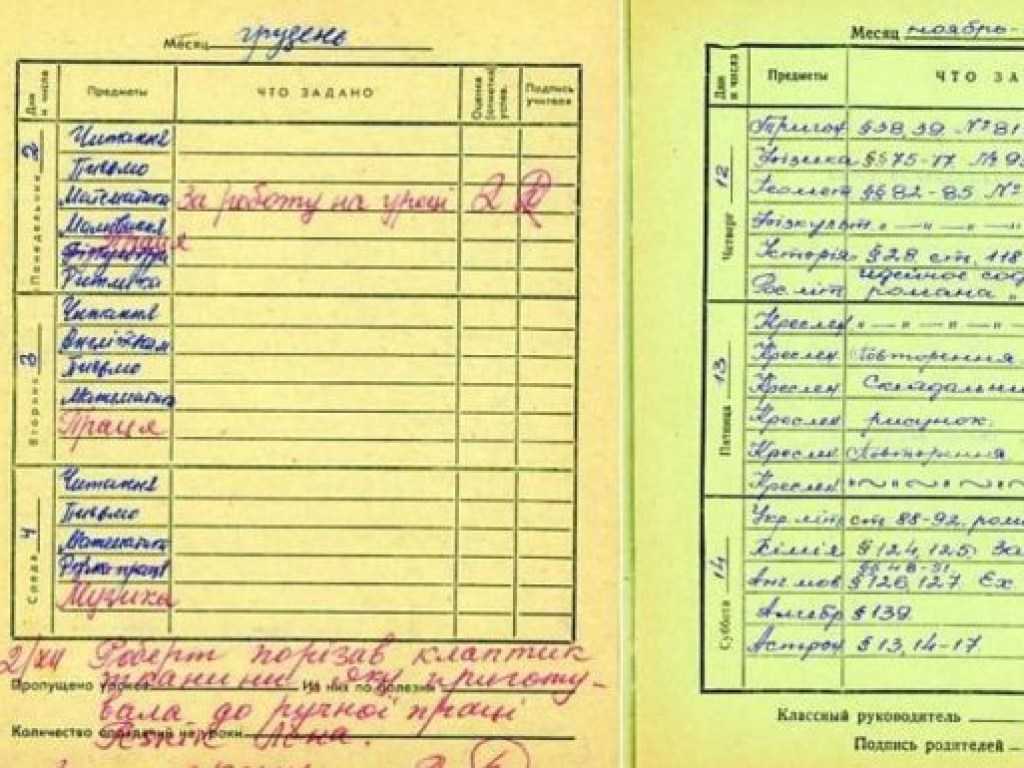 Месяц грудень
Дни и числа
Предметы
ЧТО ЗАДАНО
Оценка (отметка) успев.
Подпись учителя
Понедельник 2
Читання
Письмо
Математика За роботу на уроці 2
Малювання
Праця
Фізкультура
Ритміка
Вторник 3
Читання
Письмо
Математика
Праця
Среда 4
Читання
Письмо
Математика
Ручна праця
Музика
2/XII Роберт порізав клаптик
Пропущено уроков Из них по болезни
тканини яку приготу-
вала до ручної праці
Количество опозданий на уроки
Лєна.
Месяц ноябрь-
Дни и числа
Предметы
ЧТО ЗА
Четверг 12
Тригон §38, 39. № 81
Фізика §§75-77. № 9
Геомет §§ 82-85 №
Фізкульт " — " — " — "
Історія § 28 ст. 118
Рос. літ идейное сод
романа "
Пятница 13
Креслен " — " — " — "
Креслен Повторення
Креслен Складальни
Креслен рисунок.
Креслен Повторення
Креслен " ~ " ~ " ~ "
Суббота 14
Укр. літ ст 88-92. ром
Хімія § 124, 125 За
§§ 48-51,
Анг мов § 126, 127. Ex
Алгебр § 139
Астрон § 13, 14-17.
Классный руководитель
Подпись родителей